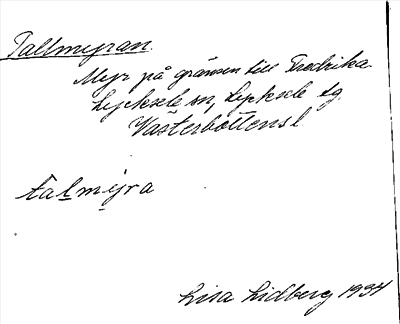 Tallmyran.
Myr på gränsen till Fredrika
Lycksele sn, Lycksele tg.
Västerbottens l
talmyra
Lisa Lidberg 1934